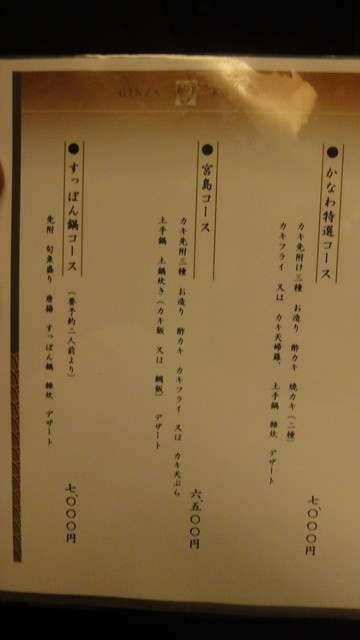 GINZA
●かなわ特選コース
カキ先附け三種 お造り 酢カキ 焼カキ(二種)
カキフライ 又は カキ天婦羅、 土手鍋 雑炊 デザート
七、〇〇〇円
●宮島コース
カキ先附三種 お造り 酢カキ カキフライ 又は カキ天ぷら
土手鍋 土鍋炊き(カキ飯 又は 鯛飯) デザート
六、五〇〇円
●すっぽん鍋コース
(要予約二人前より)
先附 旬魚盛り 唐揚 すっぽん鍋 雑炊 デザート
七、〇〇〇円